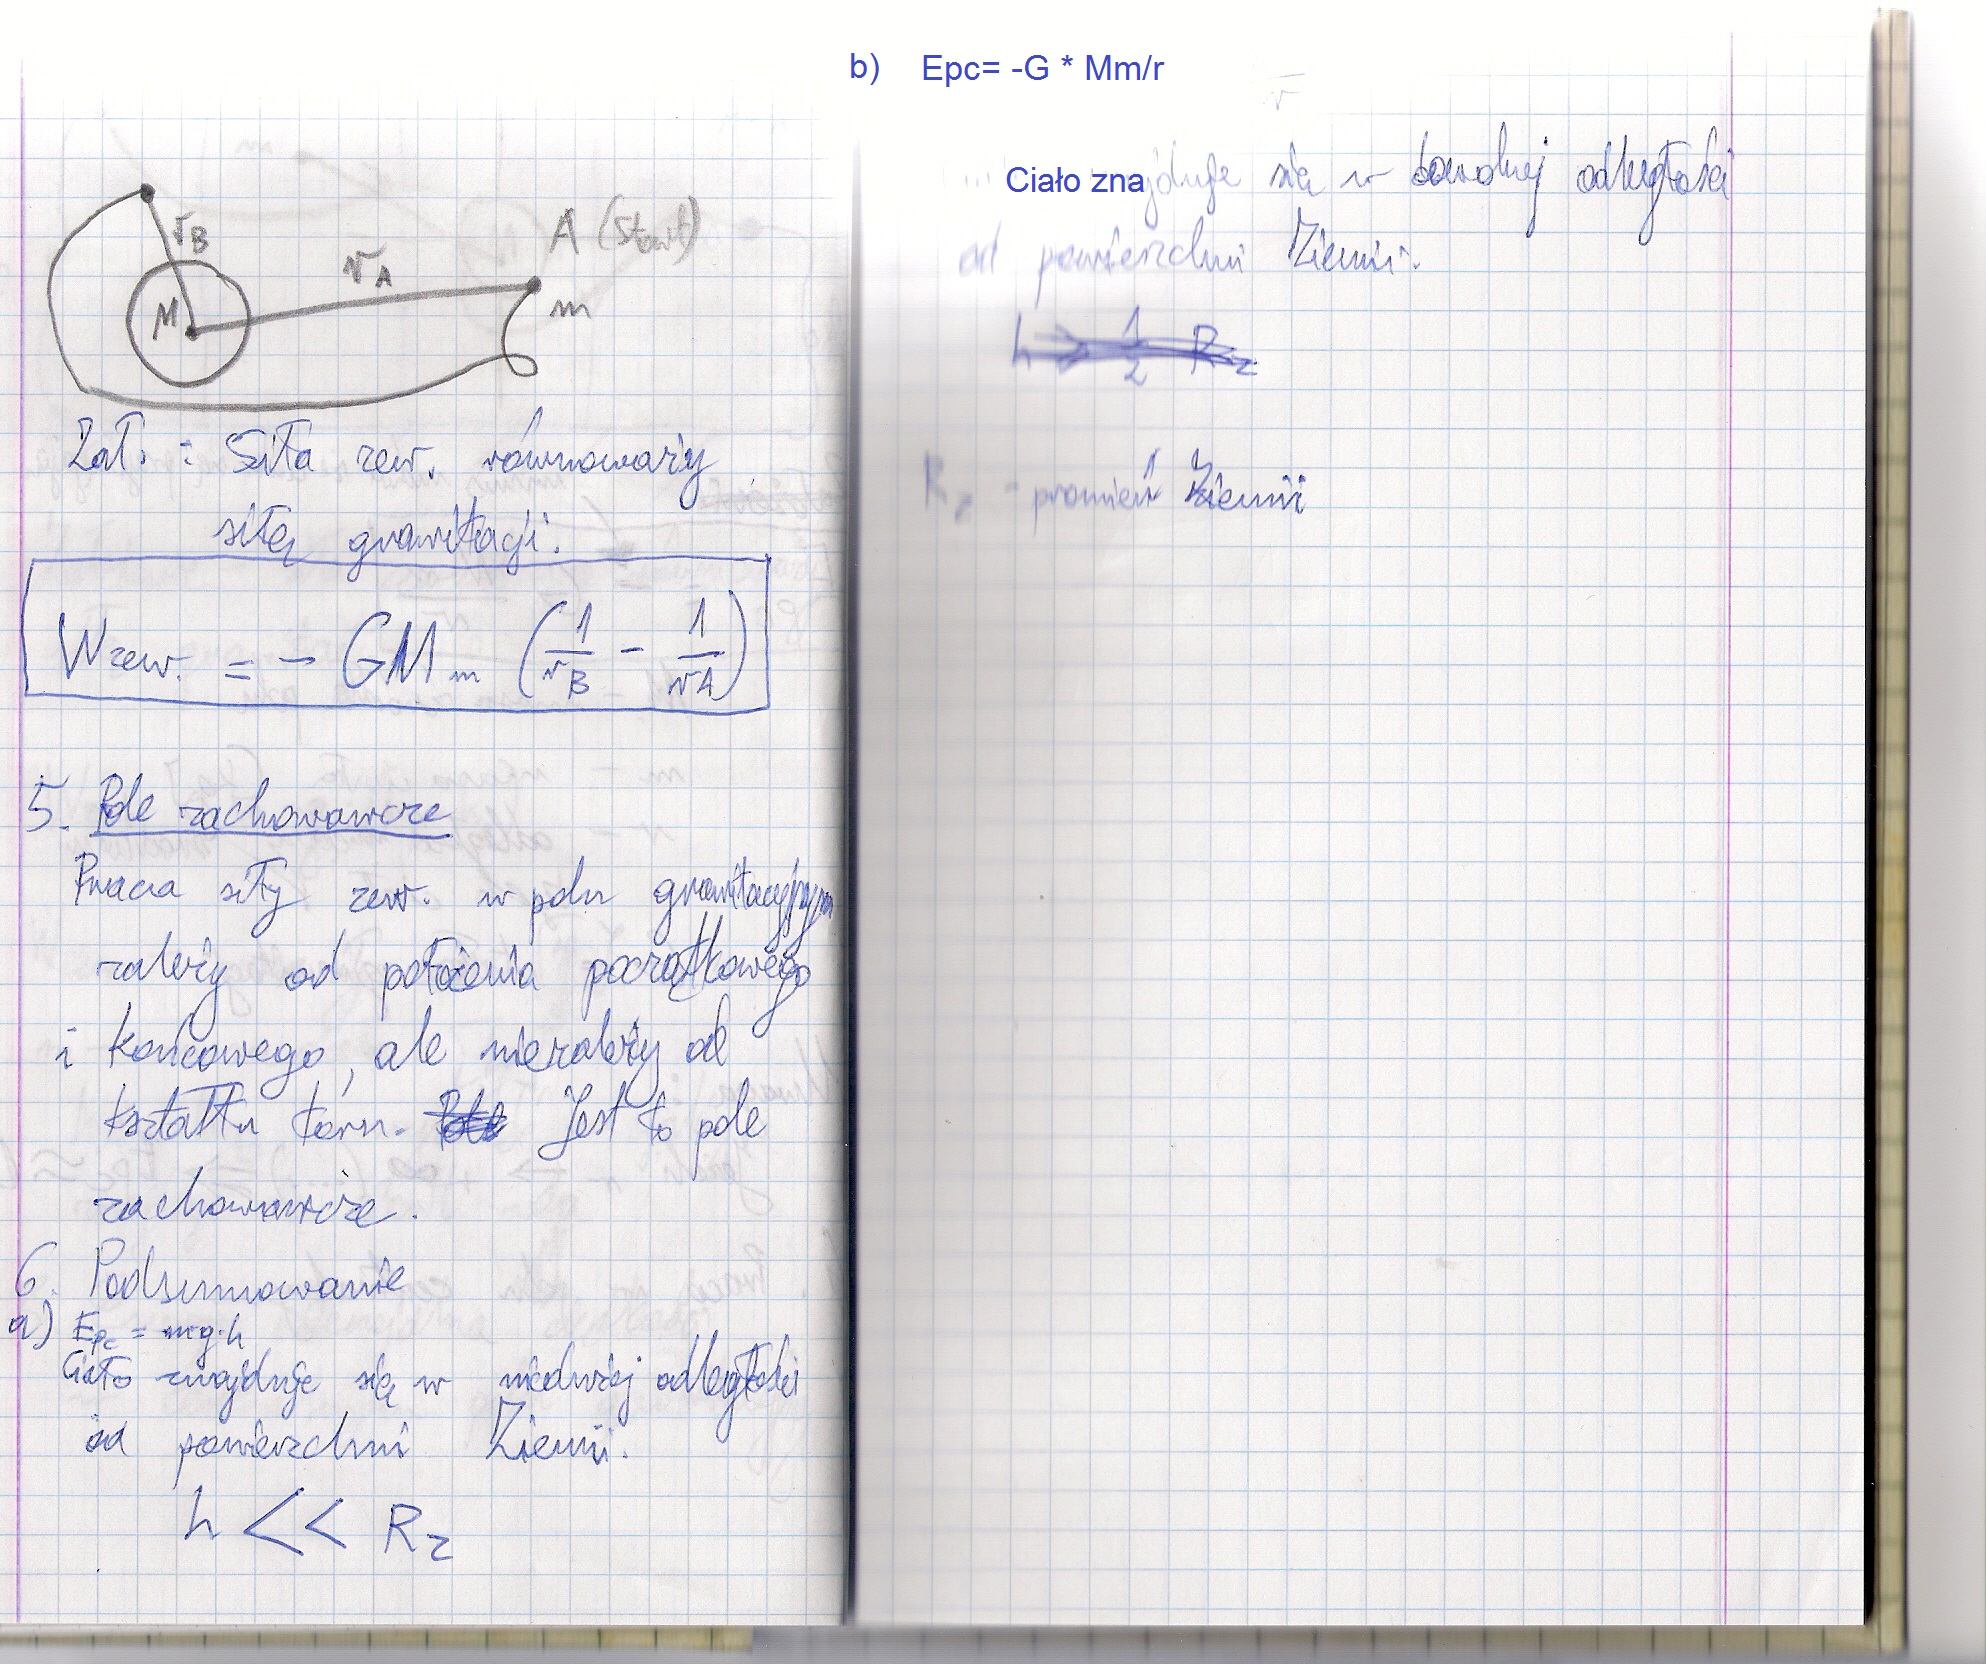 r_B
r_A
A (Start)
M
m
Zał. : Siła zew. równoważy
siłę grawitacji.
W zew. = - GMm (1/r_B - 1/r_A)
5. Pole zachowawcze
Praca siły zew. w polu grawitacyjnym
zależy od położenia początkowego
i końcowego, ale niezależy od
kształtu toru. Jest to pole
zachowawcze.
6. Podsumowanie
a) Epc = mg·h
Ciało znajduje się w niedużej odległości
od powierzchni Ziemii.
h << Rz
b) Epc= -G * Mm/r
Ciało znajduje się w dowolnej odległości
od powierzchni Ziemii.
h > 1/2 Rz
Rz - promień Ziemii